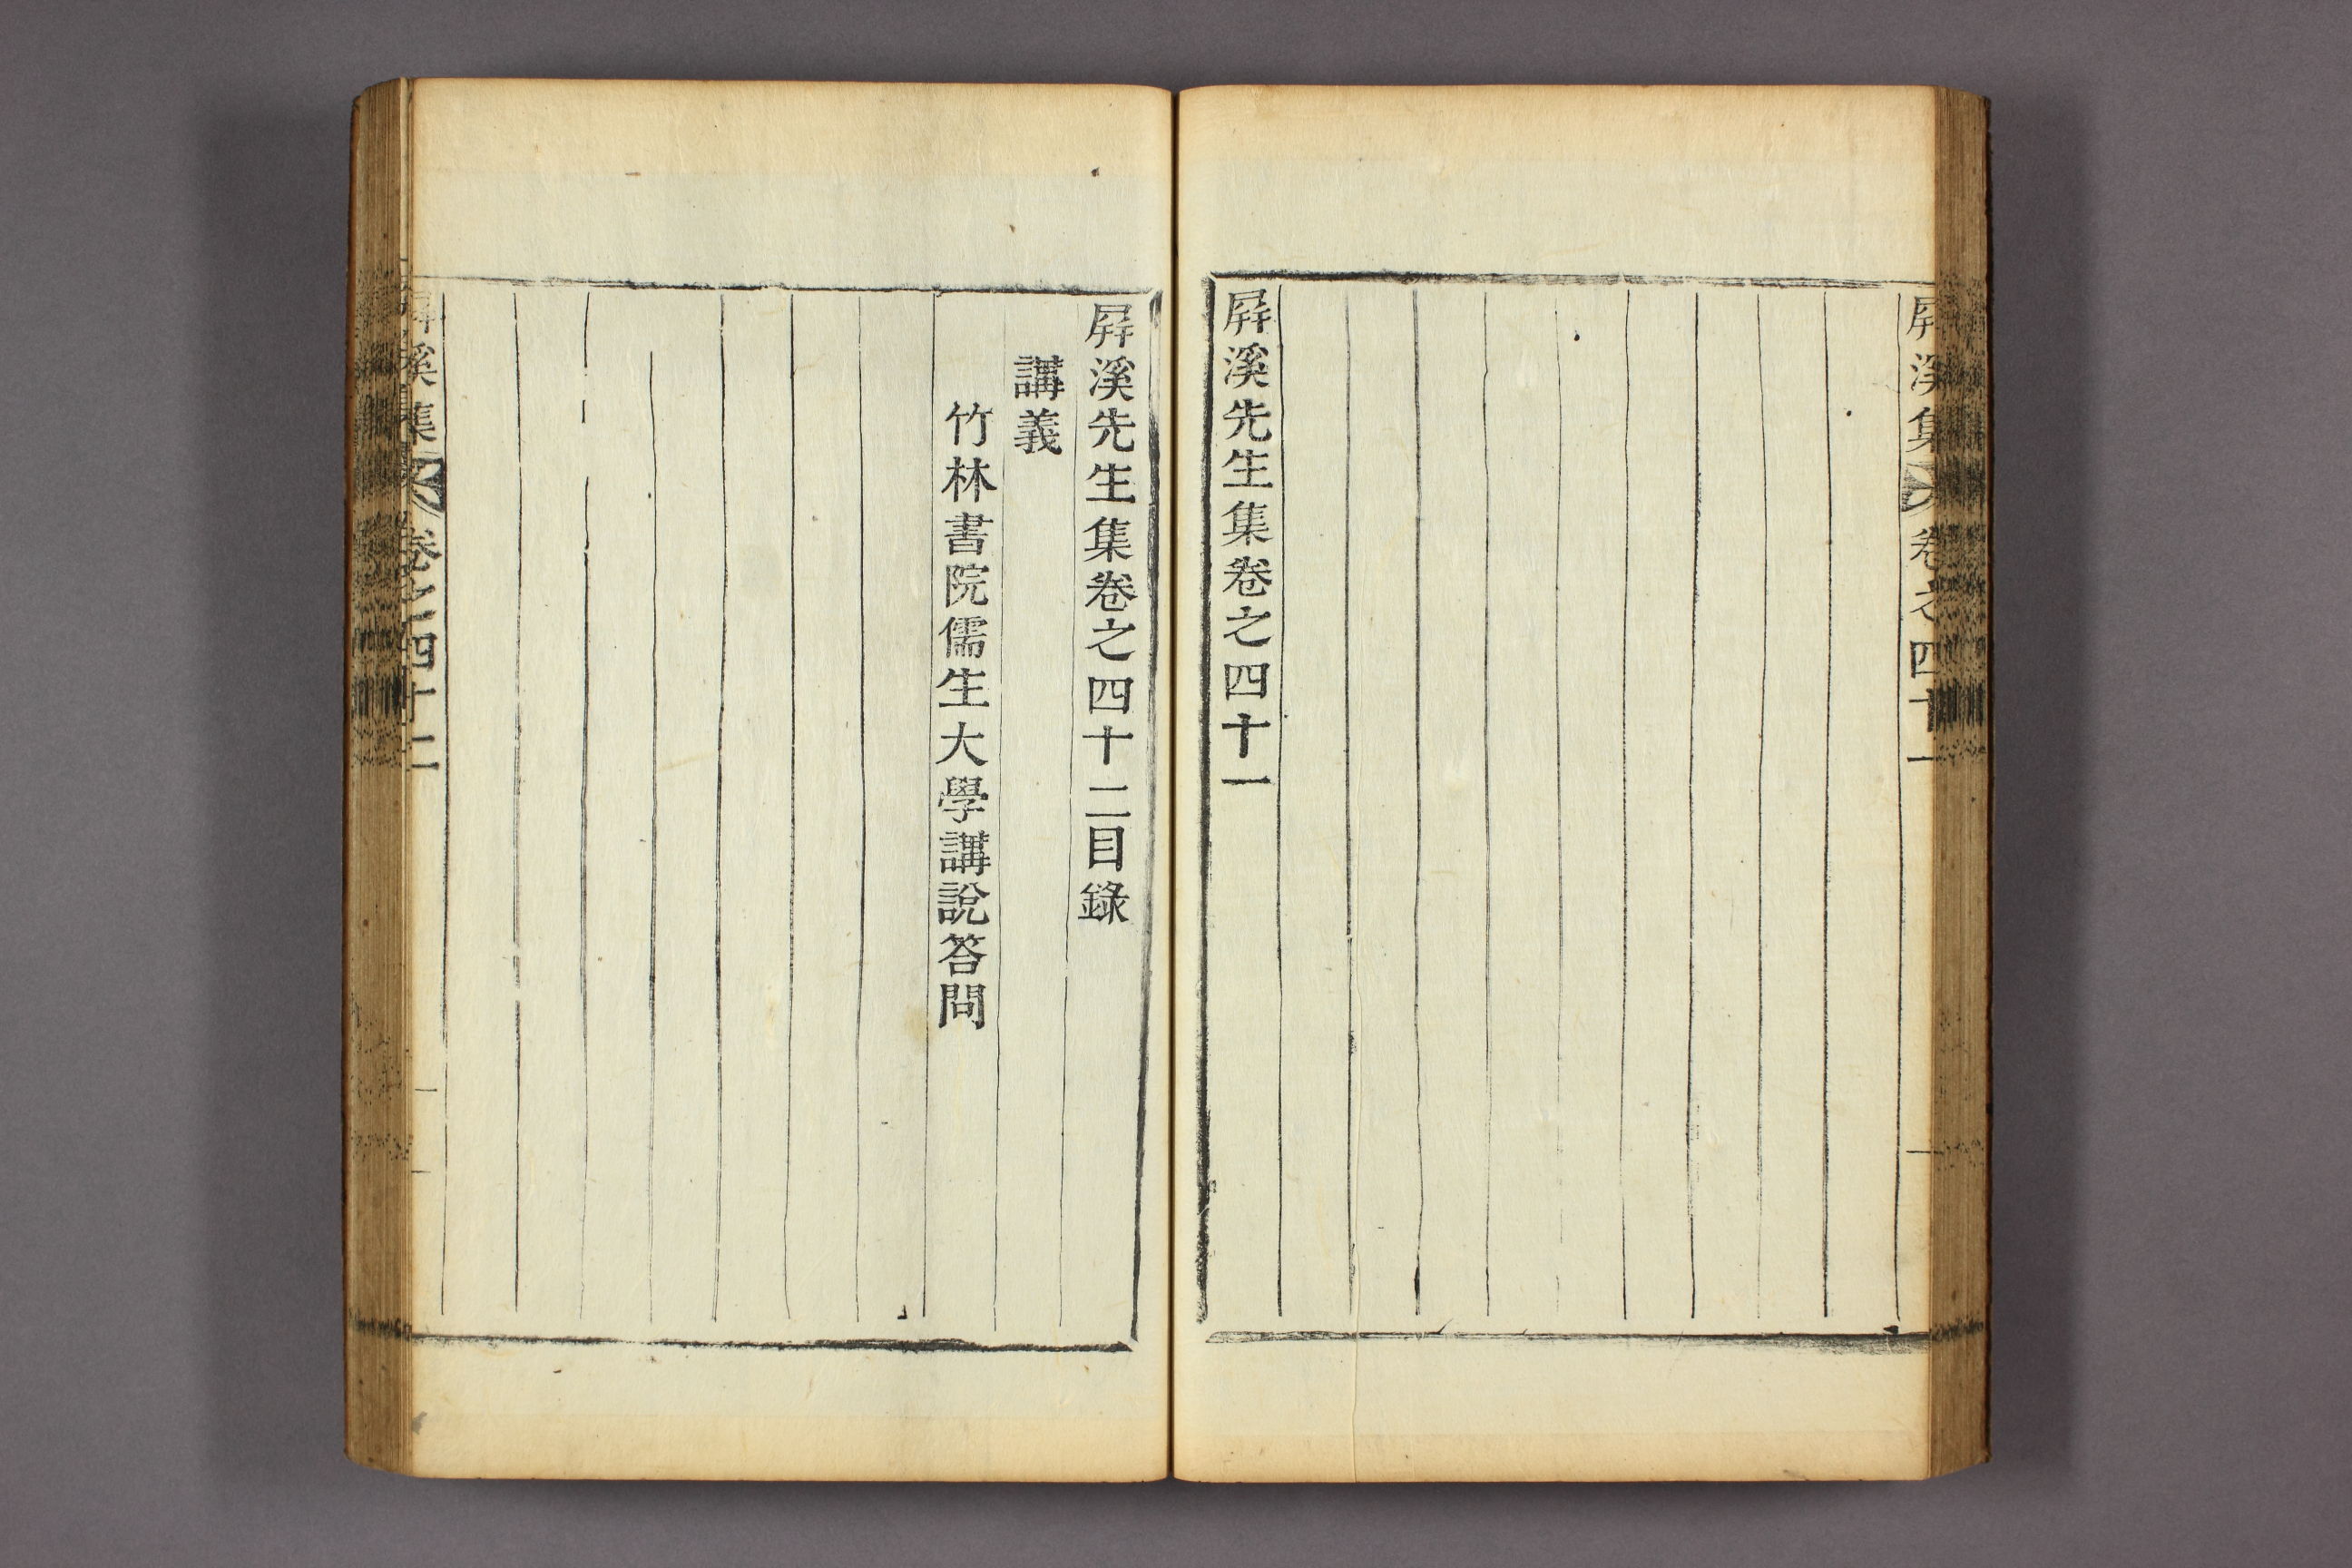 屛溪集 卷之四十一
屛溪先生集卷之四十一
屛溪先生集卷之四十二目錄
講義
竹林書院儒生大學講說答問
屛溪集 卷之四十二 一